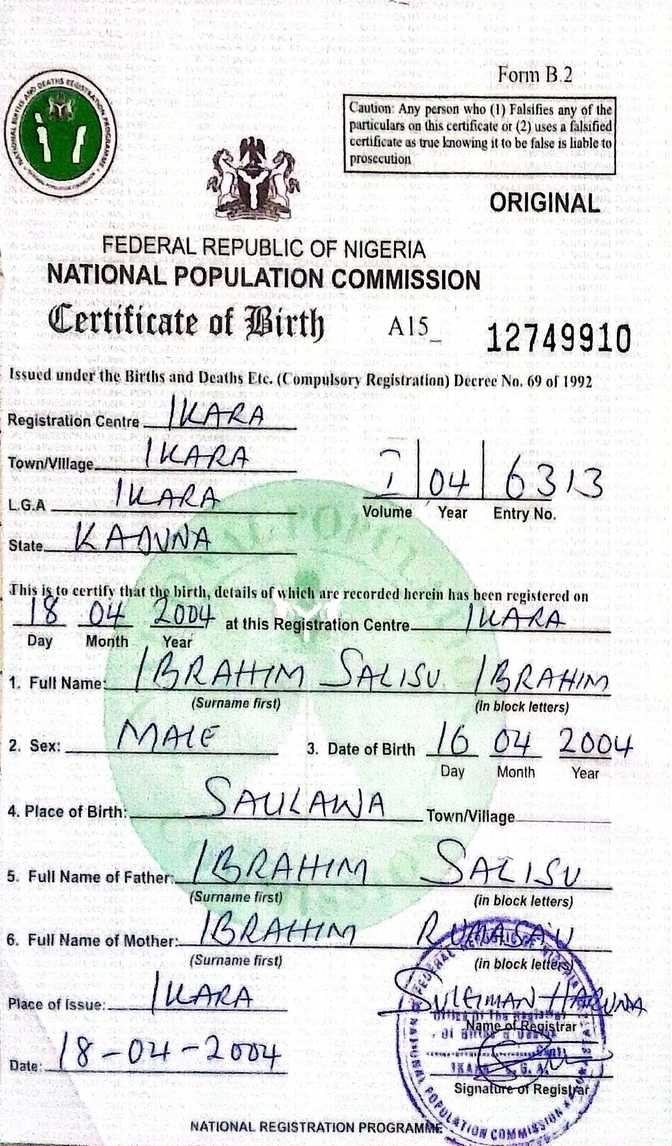 Form B.2
NATIONAL BIRTHS AND DEATHS REGISTRATION PROGRAMME
Caution: Any person who (1) Falsifies any of the
particulars on this certificate or (2) uses a falsified
certificate as true knowing it to be false is liable to
prosecution
ORIGINAL
FEDERAL REPUBLIC OF NIGERIA
NATIONAL POPULATION COMMISSION
Certificate of Birth A15_ 12749910
Issued under the Births and Deaths Etc. (Compulsory Registration) Decree No. 69 of 1992
Registration Centre IKARA
Town/Village IKARA
L.G.A IKARA
I 04 6313
Volume Year Entry No.
State KADUNA
This is to certify that the birth, details of which are recorded herein has been registered on
18 04 2004 at this Registration Centre IKARA
Day Month Year
1. Full Name: IBRAHIM SALISU IBRAHIM
(Surname first) (In block letters)
2. Sex: MALE 3. Date of Birth 16 04 2004
Day Month Year
4. Place of Birth: SAULAWA Town/Village
5. Full Name of Father: IBRAHIM SALISU
(Surname first) (in block letters)
6. Full Name of Mother: IBRAHIM RUMASA'U
(Surname first) (in block letters)
Place of Issue: IKARA SULEIMAN HARUNA
Name of Registrar
Date: 18-04-2004
Signature of Registrar
NATIONAL REGISTRATION PROGRAMME